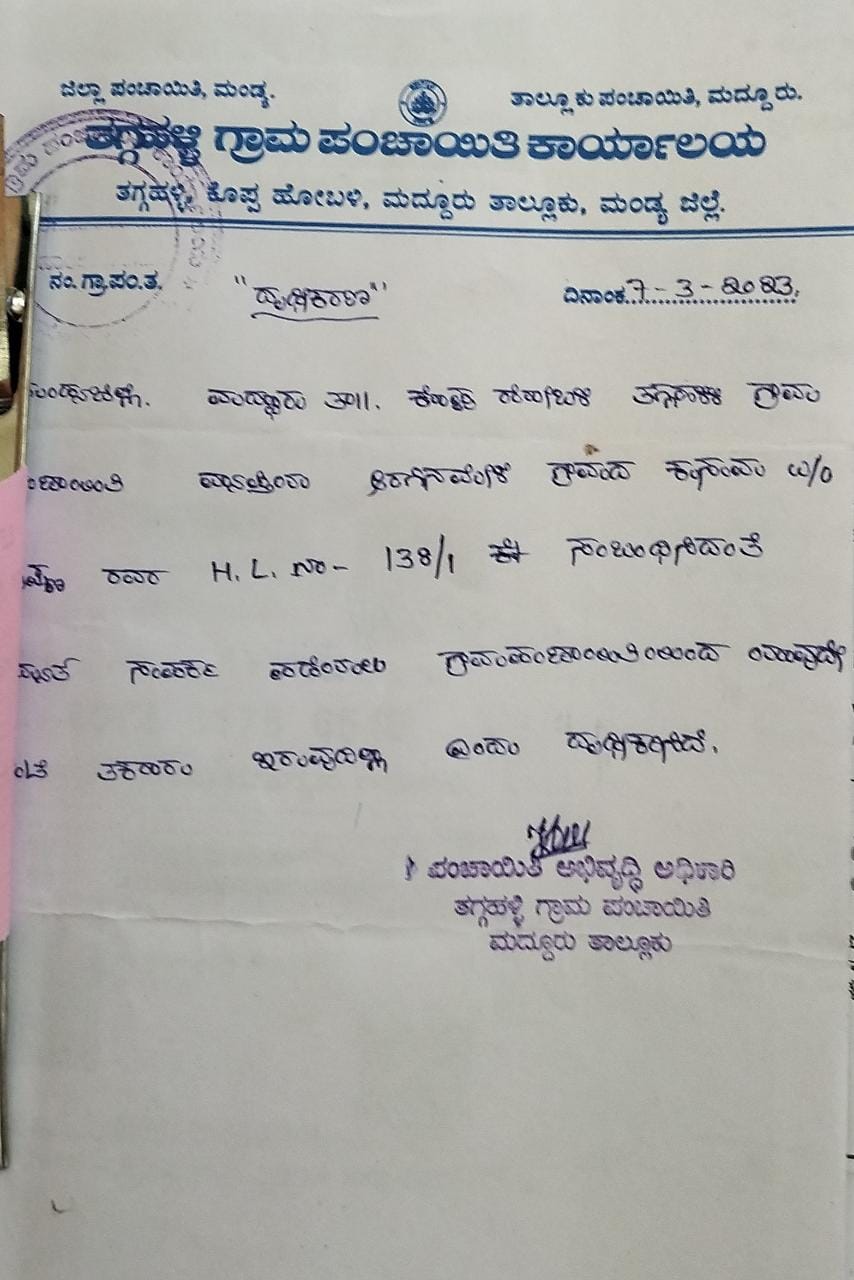 ಜಿಲ್ಲಾ ಪಂಚಾಯಿತಿ, ಮಂಡ್ಯ. ತಾಲ್ಲೂಕು ಪಂಚಾಯಿತಿ, ಮದ್ದೂರು.
ತಗ್ಗಹಳ್ಳಿ ಗ್ರಾಮ ಪಂಚಾಯಿತಿ ಕಾರ್ಯಾಲಯ
ತಗ್ಗಹಳ್ಳಿ, ಕೊಪ್ಪ ಹೋಬಳಿ, ಮದ್ದೂರು ತಾಲ್ಲೂಕು, ಮಂಡ್ಯ ಜಿಲ್ಲೆ.
ನಂ. ಗ್ರಾ.ಪಂ.ತ. "ದೃಢೀಕರಣ" ದಿನಾಂಕ 7-3-2023.
ಮಂಡ್ಯಜಿಲ್ಲೆ. ಮದ್ದೂರು ತಾ||. ಕೊಪ್ಪ ಹೋಬಳಿ ತಗ್ಗಹಳ್ಳಿ ಗ್ರಾಮ
ಪಂಚಾಯಿತಿ ಗ್ರಾಮದ W/O
ರವರ H. L. ನಂ- 138/1 ಸಂಬಂಧಿಸಿದಂತೆ
ವಿದ್ಯುತ್ ಸಂಪರ್ಕ ಪಡೆಯಲು ಗ್ರಾಮಪಂಚಾಯಿತಿಯಿಂದ ಯಾವುದೇ
ತಕರಾರು ಇರುವುದಿಲ್ಲಾ ಎಂದು ದೃಢೀಕರಿಸಿದೆ.
ಪಂಚಾಯಿತಿ ಅಭಿವೃದ್ಧಿ ಅಧಿಕಾರಿ
ತಗ್ಗಹಳ್ಳಿ ಗ್ರಾಮ ಪಂಚಾಯಿತಿ
ಮದ್ದೂರು ತಾಲ್ಲೂಕು